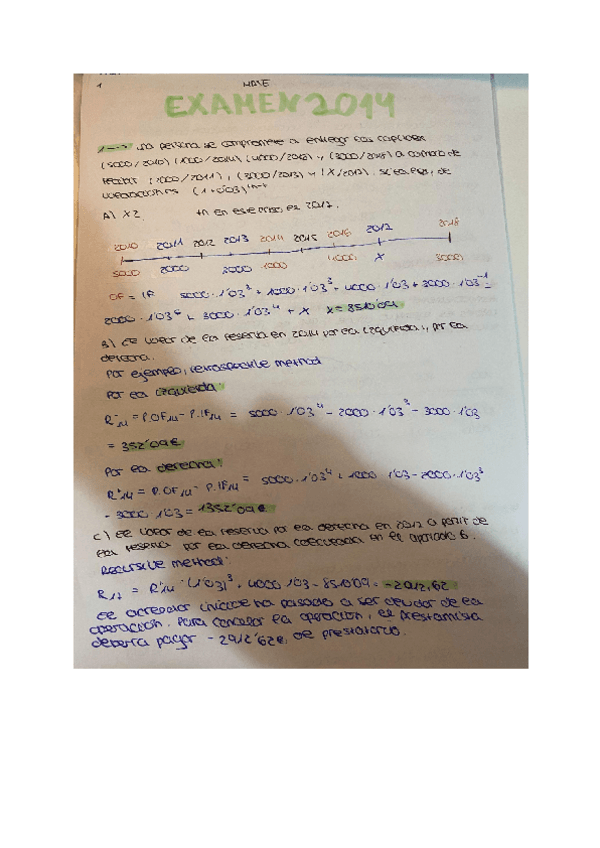 1
EXAMEN 2014
1 --> Una persona se compromete a entregar los capitales
(5000/2010) (1000/2014) (4000/2016) y (3000/2018) a cambio de
recibir (2000/2011), (3000/2013) y (X/2017). Si la ley de
(1+0'03)
A) X?
+n en ese caso, es 2017.
2010 2011 2012 2013 2014 2015 2016 2017 2018
5000 2000 3000 1000 4000 X 3000
OF = IF 5000 · 1'03 + 1000 · 1'03³ + 4000 · 1'03 + 3000 · 1'03⁻¹ =
2000 · 1'03⁶ + 3000 · 1'03⁴ + X X = 8510'09
B) El valor de la reserva en 2014 por la izquierda y por la
derecha.
Por ejemplo, retrospective method
Por la izquierda:
R⁻₁₄ = P.OF₁₄ - P.IF₁₄ = 5000 · 1'03⁴ - 2000 · 1'03³ - 3000 · 1'03
= 352'09€
Por la derecha:
R⁺₁₄ = P.OF₁₄ - P.IF₁₄ = 5000 · 1'03⁴ + 1000 · 1'03 - 2000 · 1'03³
- 3000 · 1'03 = 1352'09€
C) El valor de la reserva por la derecha en 2017 a partir de
la reserva por la derecha calculada en el apartado b.
Recursive method:
R₁₇ = R⁺₁₄ · (1'03)³ + 4000 · 1'03 - 8510'09 = -2912,62
El acreedor inicial ha pasado a ser deudor de la
operación. Para cancelar la operación, el prestamista
debería pagar -2912'62€ al prestatario.